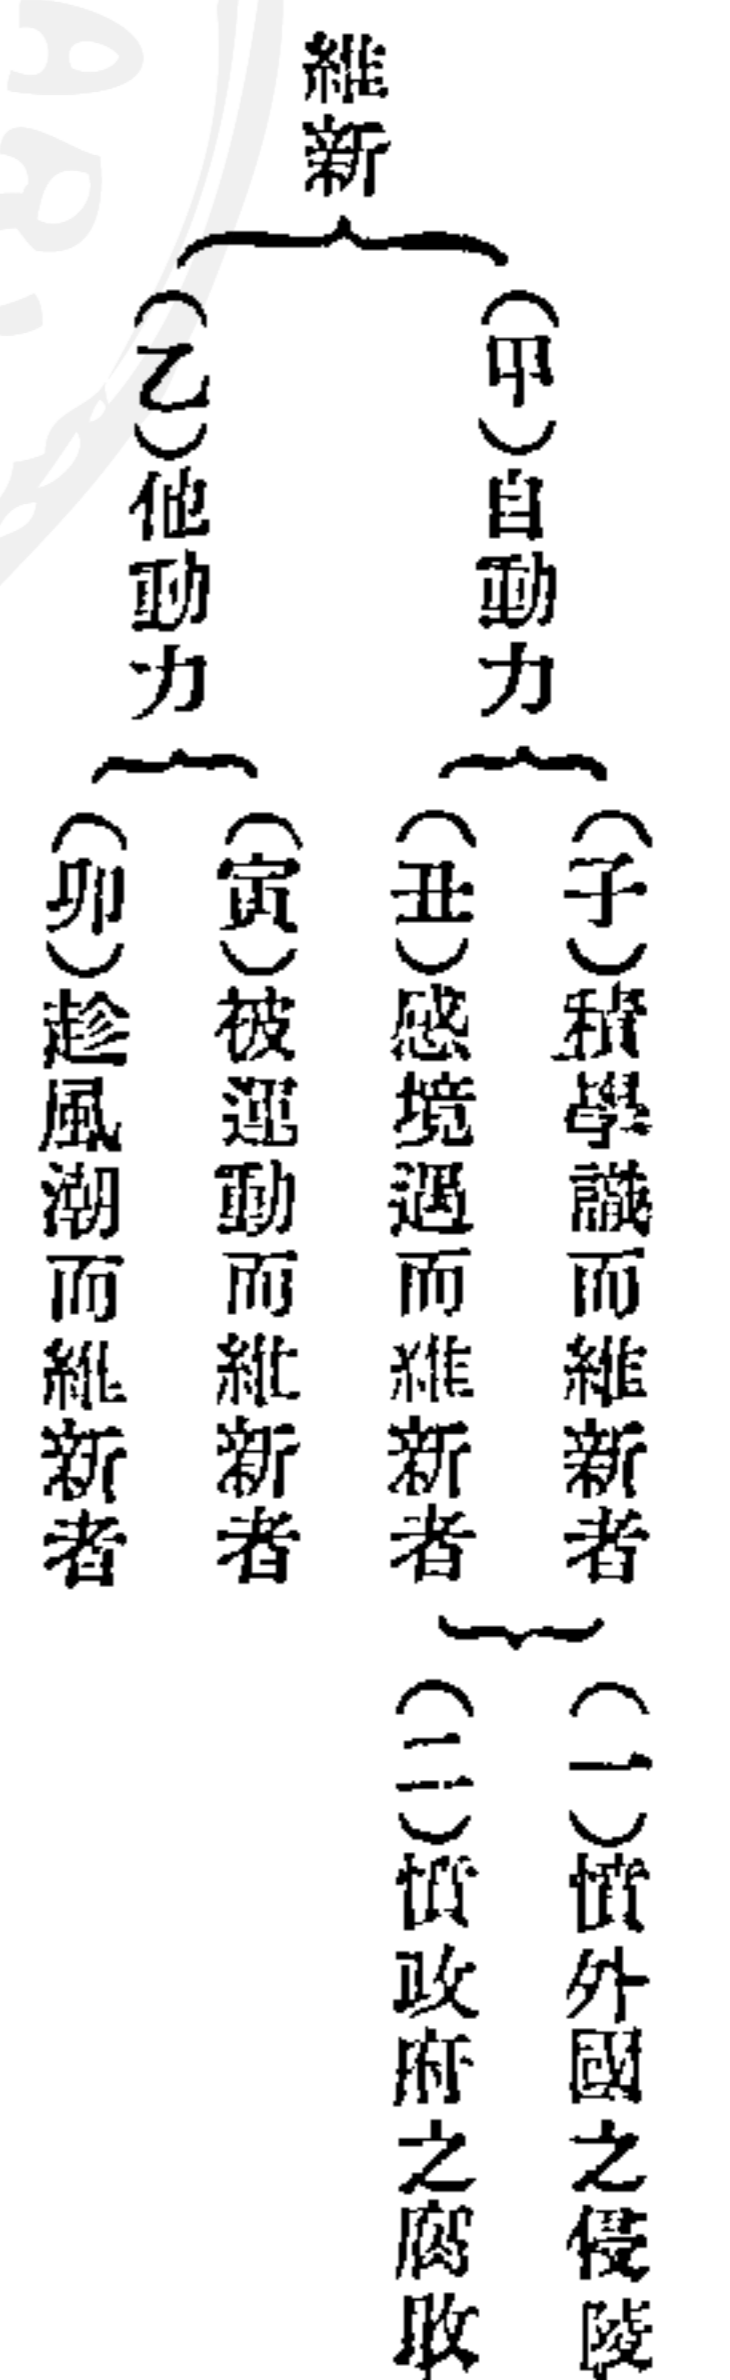 維新
（甲）自動力
（子）積學識而維新者
（丑）感境遇而維新者
（一）憤外國之侵陵
（二）憤政府之腐敗
（乙）他動力
（寅）被運動而維新者
（卯）趁風潮而維新者